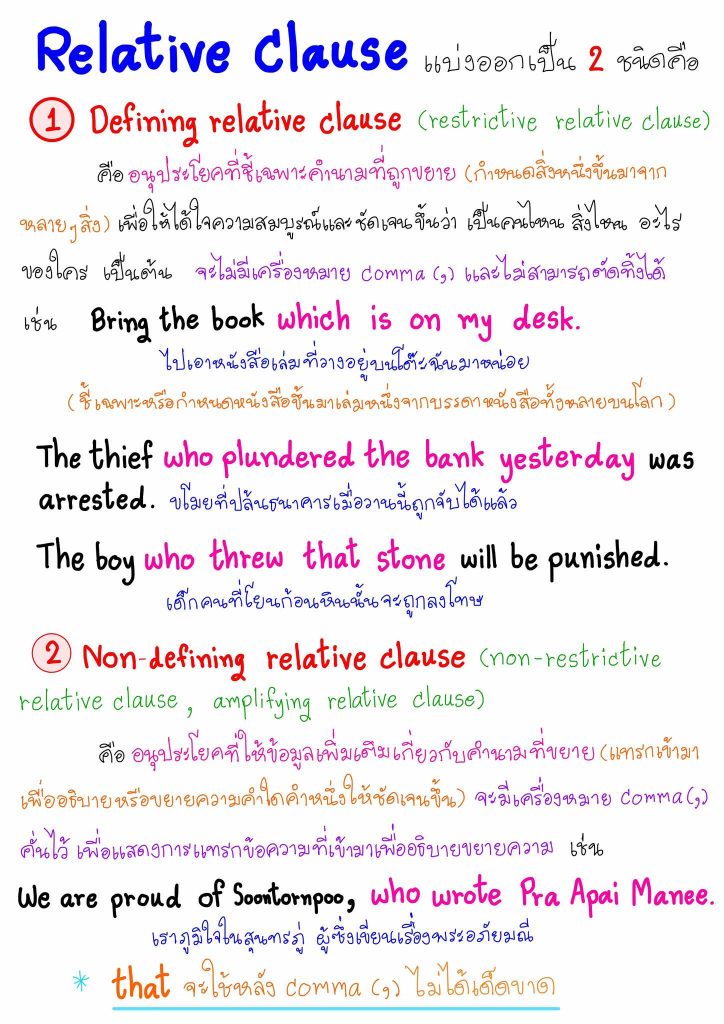 Relative Clause แบ่งออกเป็น 2 ชนิดคือ
1 Defining relative clause (restrictive relative clause)
คือ อนุประโยคที่ชี้เฉพาะคำนามที่ถูกขยาย (กำหนดสิ่งหนึ่งขึ้นมาจาก
หลายๆสิ่ง) เพื่อให้ได้ใจความสมบูรณ์และชัดเจนขึ้นว่า เป็นคนไหน สิ่งไหน อะไร
ของใคร เป็นต้น จะไม่มีเครื่องหมาย comma (,) และไม่สามารถตัดทิ้งได้
เช่น Bring the book which is on my desk.
ไปเอาหนังสือเล่มที่วางอยู่บนโต๊ะฉันมาหน่อย
(ชี้เฉพาะหรือกำหนดหนังสือขึ้นมาเล่มหนึ่งจากบรรดาหนังสือทั้งหลายบนโลก)
The thief who plundered the bank yesterday was
arrested. ขโมยที่ปล้นธนาคารเมื่อวานนี้ถูกจับได้แล้ว
The boy who threw that stone will be punished.
เด็กคนที่โยนก้อนหินนั้นจะถูกลงโทษ
2 Non-defining relative clause (non-restrictive
relative clause, amplifying relative clause)
คือ อนุประโยคที่ให้ข้อมูลเพิ่มเติมเกี่ยวกับคำนามที่ขยาย (แทรกเข้ามา
เพื่ออธิบายหรือขยายความคำใดคำหนึ่งให้ชัดเจนขึ้น) จะมีเครื่องหมาย comma (,)
คั่นไว้ เพื่อแสดงการแทรกข้อความที่เข้ามาเพื่ออธิบายขยายความ เช่น
We are proud of Soontornpoo, who wrote Pra Apai Manee.
เราภูมิใจในสุนทรภู่ ผู้ซึ่งเขียนเรื่องพระอภัยมณี
* that จะใช้หลัง comma (,) ไม่ได้เด็ดขาด